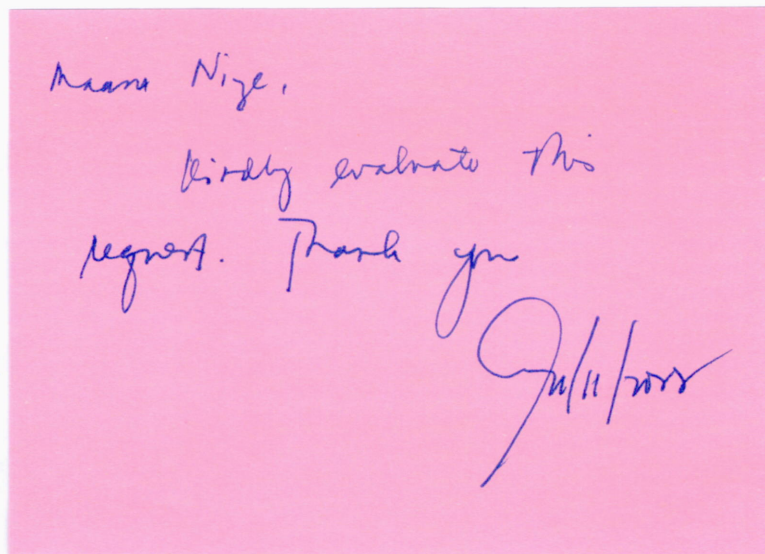 Maam Nize,
Kindly evaluate this
request. Thank you
/11/2022